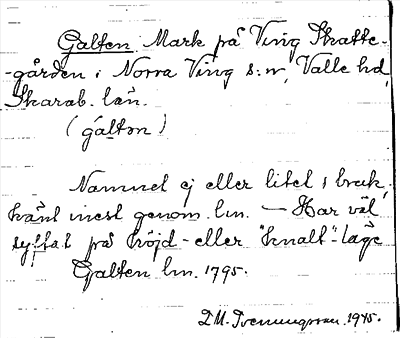 Galten. Mark på Ving Skatte-
-gården i Norra Ving s:n, Valle hd,
Skarab. län.
(galtən)
Namnet ej eller litet i bruk,
känt mest genom lm. — Har väl
syftat på höjd- eller "knalt"-läge
Galten lm. 1795.
D.M. 1945.